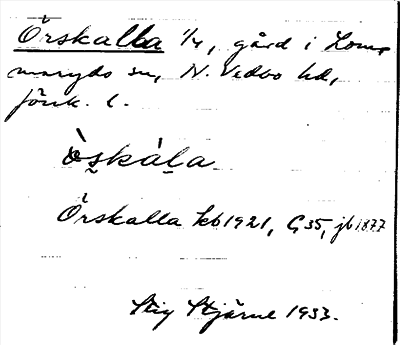 Örskalla 1/4, gård i Lom-
maryds sn, N. Vedbo hd,
Jönk. l.
ò̀s̬kàl̬a
Örskalla kb 1921, G35, jb 1877
Stig Stjärne 1933.